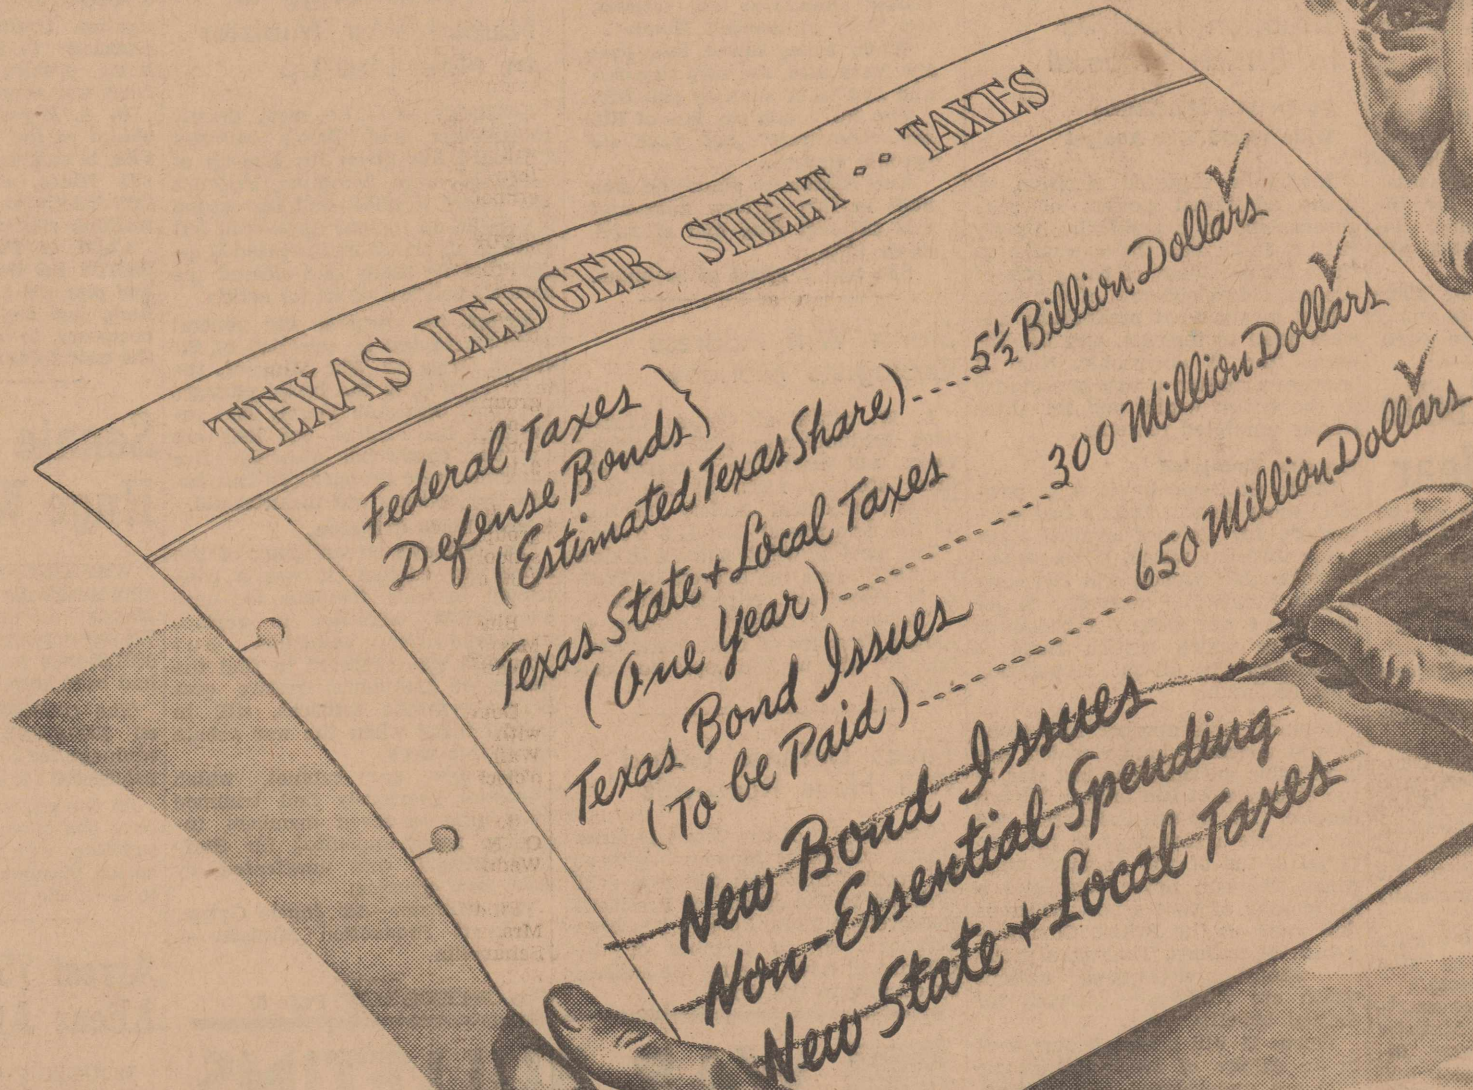 TEXAS LEDGER SHEET -- TAXES
Federal Taxes }
Defense Bonds }
(Estimated Texas Share)....5½ Billion Dollars ✓
Texas State + Local Taxes
(One Year)..............300 Million Dollars ✓
Texas Bond Issues
(To be Paid)..............650 Million Dollars ✓
New Bond Issues
Non-Essential Spending
New State + Local Taxes